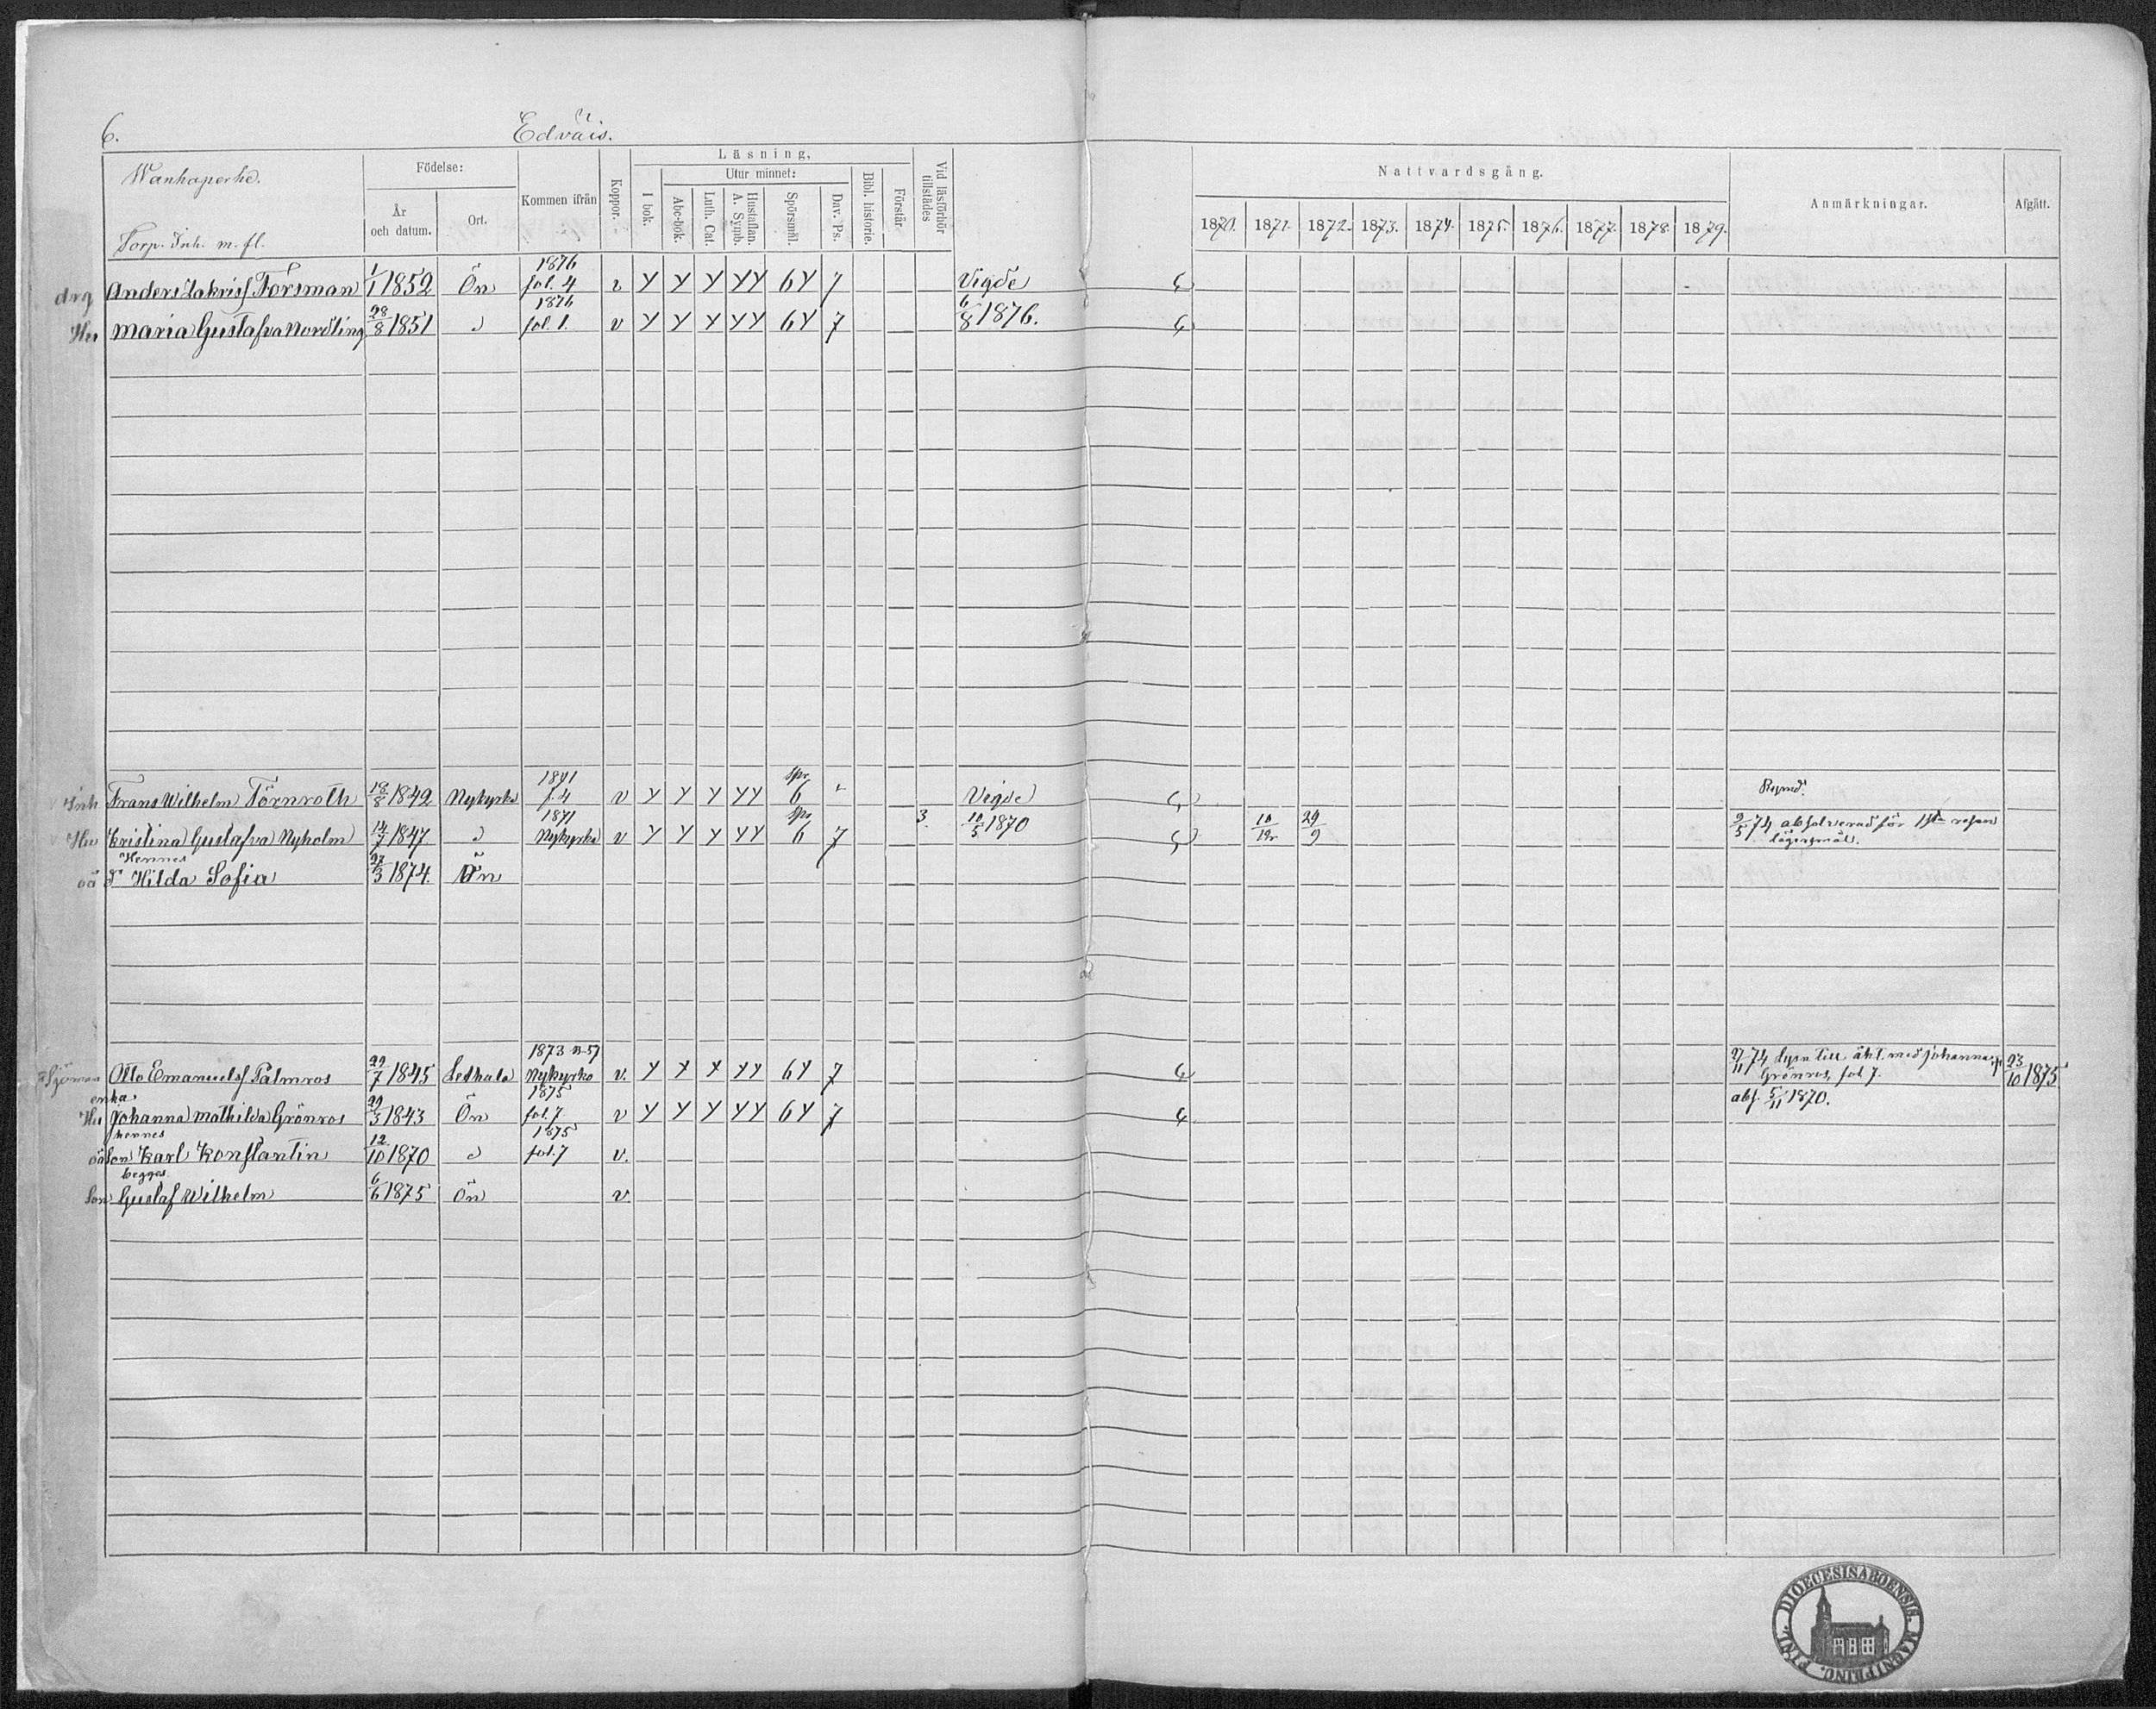 6. Edväis.
Wanhaperhe.
Torp. Inh. m. fl.
Födelse:
År och datum.
Ort.
Kommen ifrån
Koppor.
Läsning,
I bok.
Utur minnet:
Abc-bok.
Luth. Cat.
Hustaflan. A. Symb.
Spörsmål.
Dav. Ps.
Bibl. historie.
Förstår
Vid läsförhör tillstädes
Nattvardsgång.
1870. 1871. 1872. 1873. 1874. 1875. 1876. 1877. 1878. 1879.
Anmärkningar.
Afgått.
drg Anders Zakriss Forsman 1/1 1852 Ön 1876 fol. 4 v Y Y Y YY 6Y 7 Vigde
Hu Maria Gustafva Nordling 28/8 1851 d 1876 fol. 1. v Y Y Y YY 6Y 7 6/8 1876.
Inh Frans Wilhelm Törnroth 18/8 1842 Nykyrka 1871 f. 4 v Y Y Y YY spr 6 Vigde
Hu Kristina Gustafva Nyholm 14/7 1847 d 1871 Nykyrka v Y Y Y YY spr 6 7 3. 10/5 1870 29/9 9/5 74 absolverad för 1sta resan
lägersmål.
Hennes
oä Dr Hilda Sofia 27/3 1874. Ön
Sjöman Otto Emanuelss Palmros 22/7 1845 Lethala 1873 Nykyrko v. Y Y Y YY 6Y 7 74 Lysn till äkt. med Johanna 23/10 1875
Grönros, fol 7.
enka
Hu Johanna Mathilda Grönros 29/3 1843 Ön 1875 fol. 7 v Y Y Y YY 6Y 7 abs. 5/11 1870.
hennes
oä Son Karl Konstantin 12/10 1870 d 1875 fol. 7 v.
begges
Son Gustaf Wilhelm 6/6 1875 Ön v.
DIOECESIS ABOENSIS. MAGNI PRINC. FINL.